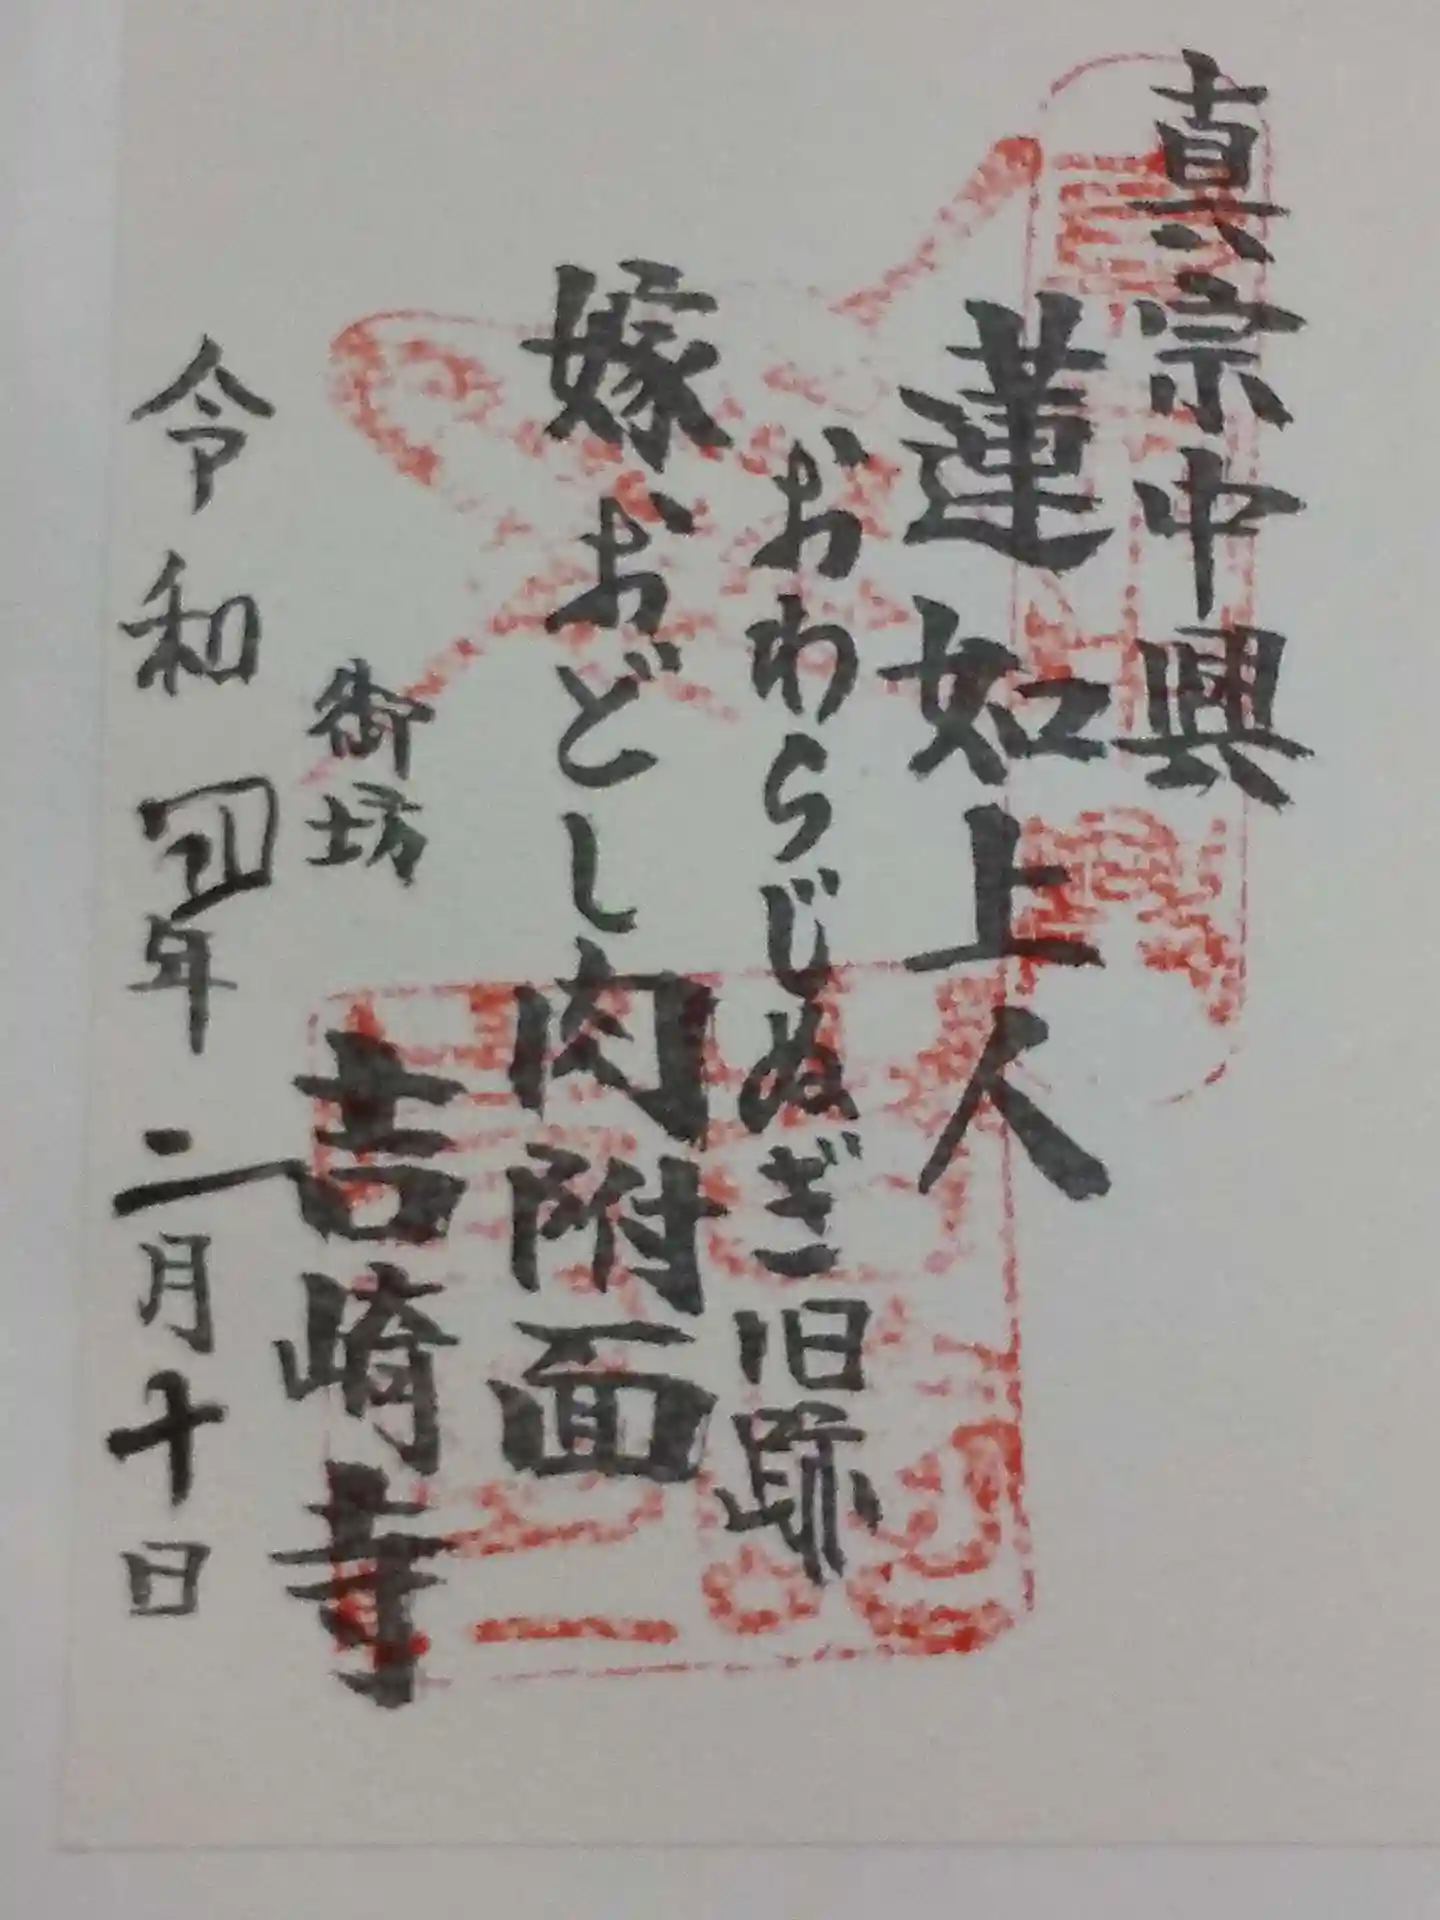 真宗中興
蓮如上人
おわらじぬぎ旧跡
嫁おどし肉附面
御坊
吉崎寺
令和四年二月十日